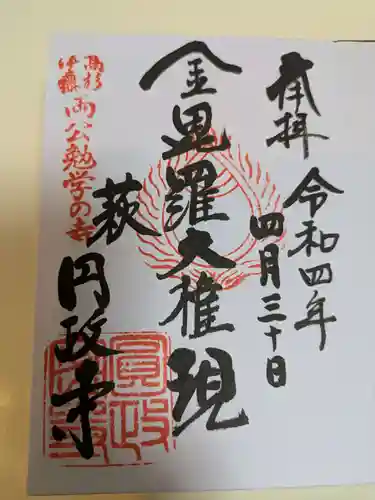 奉拝
令和四年
四月三十日
金毘羅大権現
萩
円政寺
高杉
伊藤
両公勉学の寺
圓政
寺印